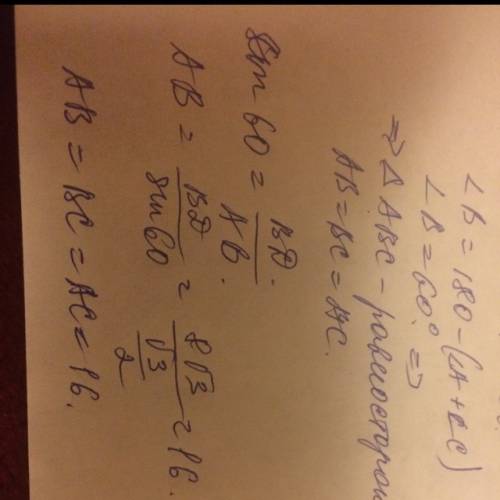 ∠B = 180 - (∠A + ∠C)
∠B = 60° ⇒
⇒ Δ ABC - равносторон
AB = BC = AC.
sin 60 = BD / AB.
AB = BD / sin 60 = 8√3 / (√3 / 2) = 16.
AB = BC = AC = 16.